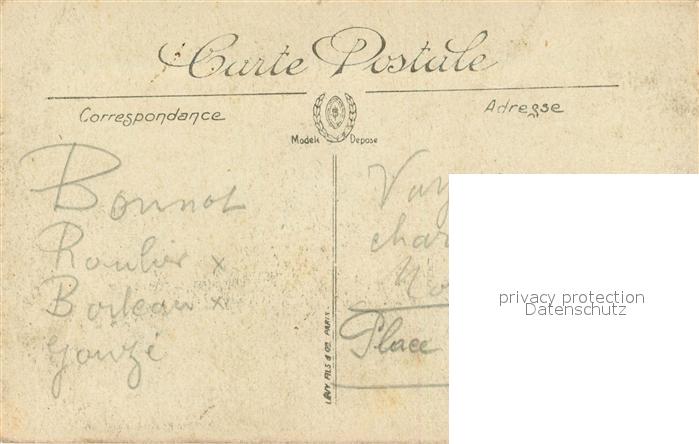 Carte Postale
Correspondance
Adresse
Modele Depose
Bonnot
Roulier x
Boileau x
Gouzé
LEVY FILS & Co. PARIS
Place
privacy protection
Datenschutz